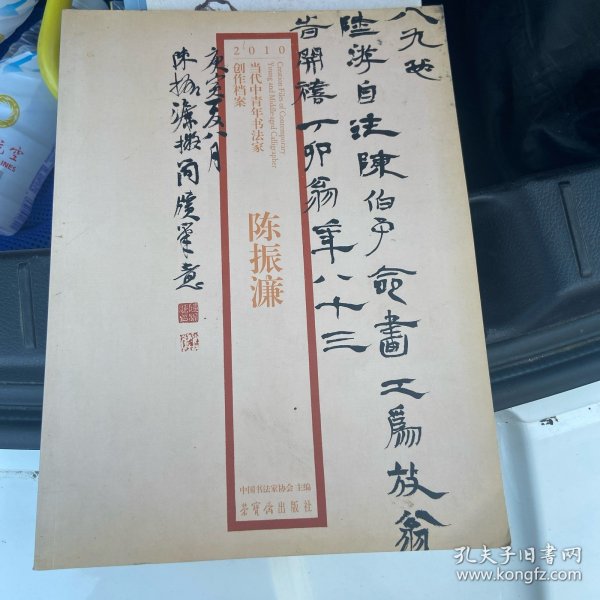 陸游自
陳伯予命畫工爲放翁
時開禧丁卯翁年八十三
庚寅夏八月
陳振濂擬簡牘筆意
2010
当代中青年书法家
创作档案
Creation Files of Contemporary
Young and Middle-aged Calligrapher
陈振濂
中国书法家协会 主编
荣宝斋出版社
孔夫子旧书网
www.kongfz.com